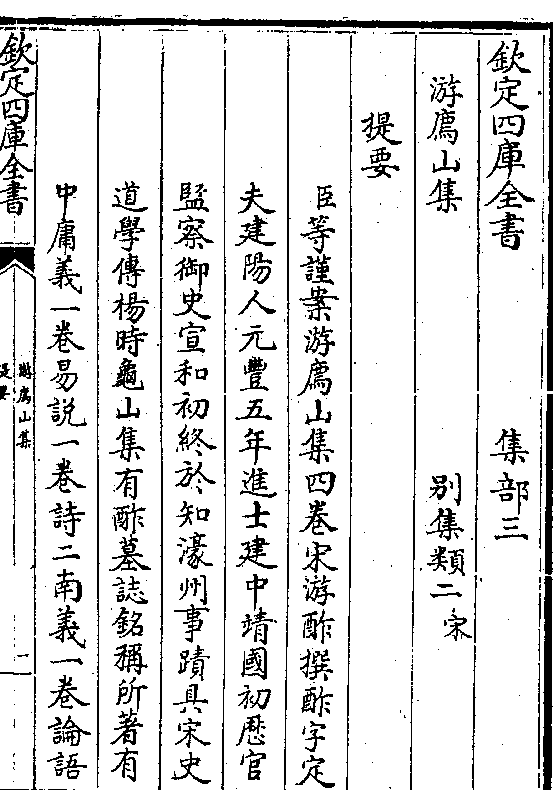 欽定四庫全書　　集部三
游廌山集　　別集類二宋
提要
臣等謹案游廌山集四卷宋游酢撰酢字定
夫建陽人元豐五年進士建中靖國初歷官
監察御史宣和初終於知濠州事蹟具宋史
道學傳楊時龜山集有酢墓誌銘稱所著有
中庸義一卷易説一卷詩二南義一卷論語
欽定四庫全書
游廌山集
提要
一